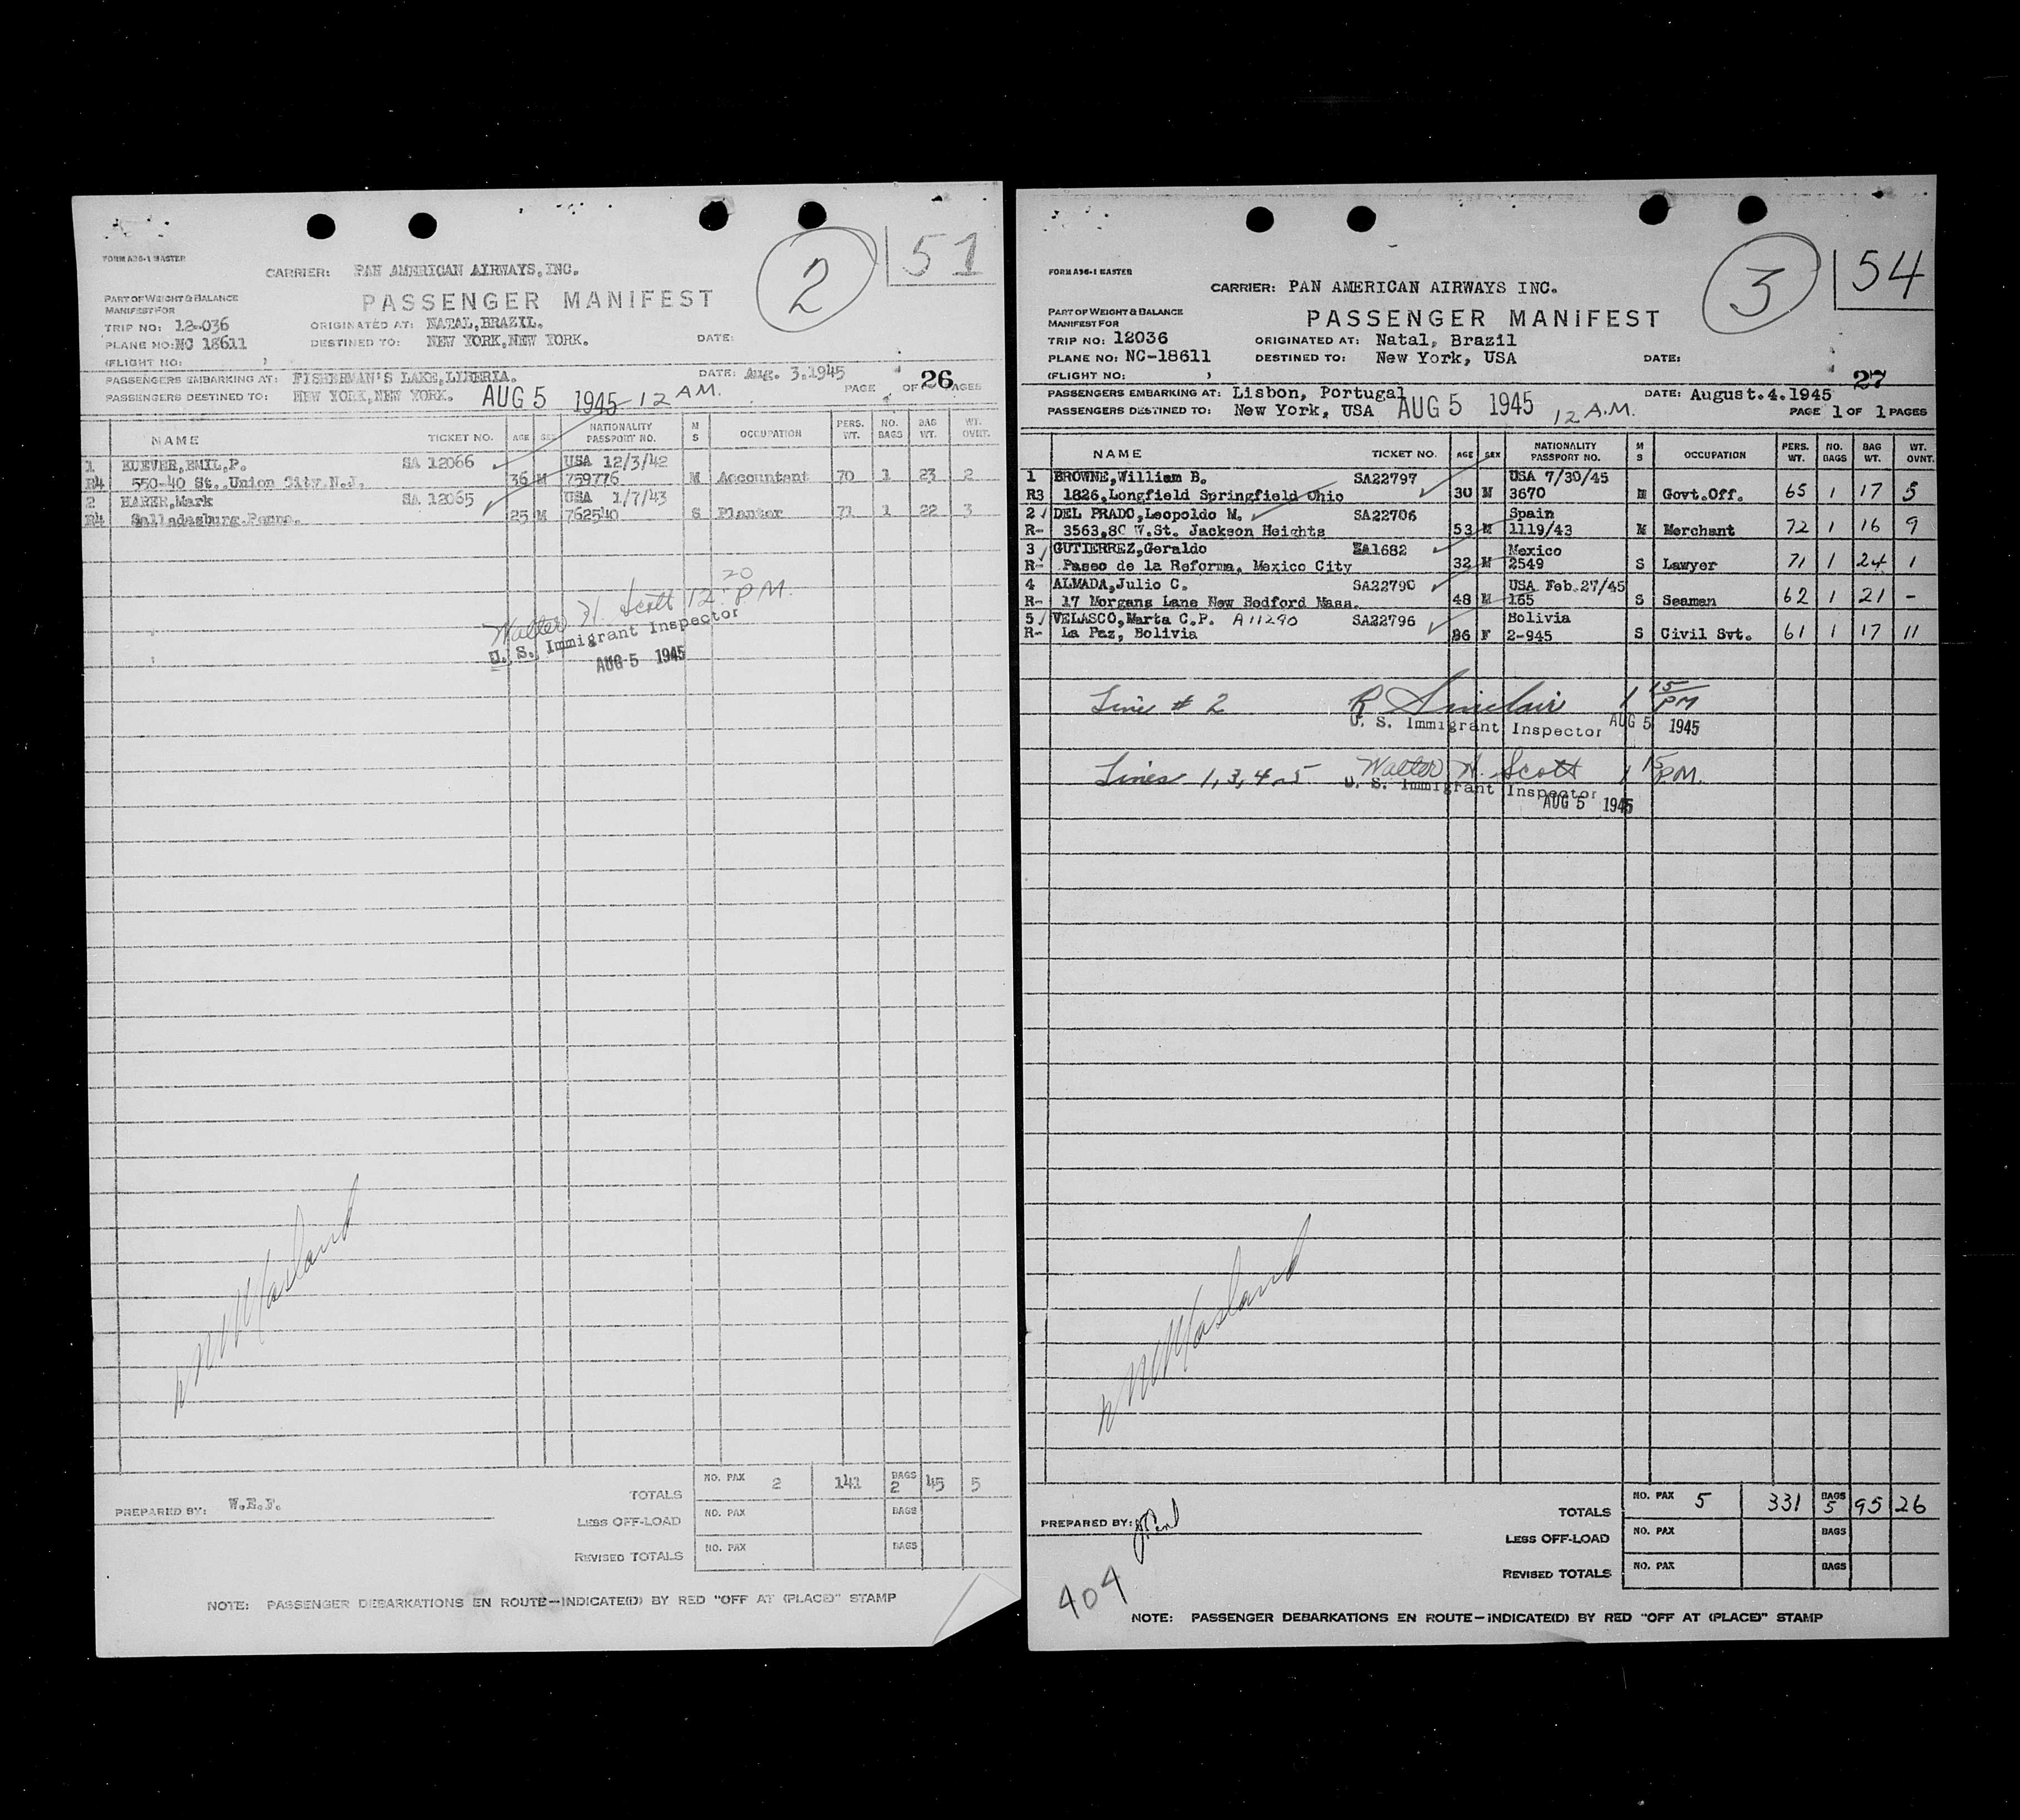 2
51
FORM A36-1 MASTER
CARRIER: PAN AMERICAN AIRWAYS, INC.
PART OF WEIGHT & BALANCE
MANIFEST FOR
PASSENGER MANIFEST
TRIP NO: 12-036
ORIGINATED AT: NATAL, BRAZIL.
PLANE NO: NC 18611
DESTINED TO: NEW YORK, NEW YORK.
DATE:
(FLIGHT NO: )
PASSENGERS EMBARKING AT: FISHERMAN'S LAKE, LIBERIA.
DATE: Aug. 3, 1945
PASSENGERS DESTINED TO: NEW YORK, NEW YORK. AUG 5 1945 12 A.M.
PAGE OF 26 PAGES
NAME TICKET NO. AGE SEX NATIONALITY PASSPORT NO. M S OCCUPATION PERS. WT. NO. BAGS BAG WT. WT. OVNT.
1 EMIL, P. SA 12066 USA 12/3/42
R4 550-40 St. Union City N.J. 36 M 759776 M Accountant 70 1 23 2
2 HARER, Mark SA 12065 USA 1/7/43
R4 Salladasburg Penna. 25 M 762540 S Planter 71 1 22 3
Walter H. Scott 12 20 P.M.
U. S. Immigrant Inspector
AUG 5 1945
TOTALS NO. PAX 2 141 BAGS 2 45 5
PREPARED BY: W.E.F.
LESS OFF-LOAD NO. PAX BAGS
REVISED TOTALS NO. PAX BAGS
NOTE: PASSENGER DEBARKATIONS EN ROUTE—INDICATE(D) BY RED "OFF AT (PLACE)" STAMP
3
54
FORM A36-1 MASTER
CARRIER: PAN AMERICAN AIRWAYS INC.
PART OF WEIGHT & BALANCE
MANIFEST FOR
PASSENGER MANIFEST
TRIP NO: 12036
ORIGINATED AT: Natal, Brazil
PLANE NO: NC-18611
DESTINED TO: New York, USA
DATE:
(FLIGHT NO: )
27
PASSENGERS EMBARKING AT: Lisbon, Portugal
DATE: August.4.1945
PASSENGERS DESTINED TO: New York, USA AUG 5 1945 12 A.M.
PAGE 1 OF 1 PAGES
NAME TICKET NO. AGE SEX NATIONALITY PASSPORT NO. M S OCCUPATION PERS. WT. NO. BAGS BAG WT. WT. OVNT.
1 BROWNE, William B. SA22797 USA 7/30/45
R3 1826, Longfield Springfield Ohio 30 M 3670 M Govt.Off. 65 1 17 5
2 DEL PRADO, Leopoldo M. SA22706 Spain
R- 3563,80 W.St. Jackson Heights 53 M 1119/43 M Merchant 72 1 16 9
3 GUTIERREZ, Geraldo EA1682 Mexico
R- Paseo de la Reforma, Mexico City 32 M 2549 S Lawyer 71 1 24 1
4 ALMADA, Julio C. SA22790 USA Feb.27/45
R- 17 Morgans Lane New Bedford Mass. 48 M 165 S Seaman 62 1 21 -
5 VELASCO, Marta C.P. A11290 SA22796 Bolivia
R- La Paz, Bolivia 36 F 2-945 S Civil Svt. 61 1 17 11
Line # 2 R Sinclair 1 15 PM
U. S. Immigrant Inspector AUG 5 1945
Lines 1, 3, 4 - 5 Walter H. Scott 1 15 P.M.
U. S. Immigrant Inspector
AUG 5 1945
TOTALS NO. PAX 5 331 BAGS 5 95 26
PREPARED BY:
LESS OFF-LOAD NO. PAX BAGS
REVISED TOTALS NO. PAX BAGS
404
NOTE: PASSENGER DEBARKATIONS EN ROUTE—INDICATE(D) BY RED "OFF AT (PLACE)" STAMP